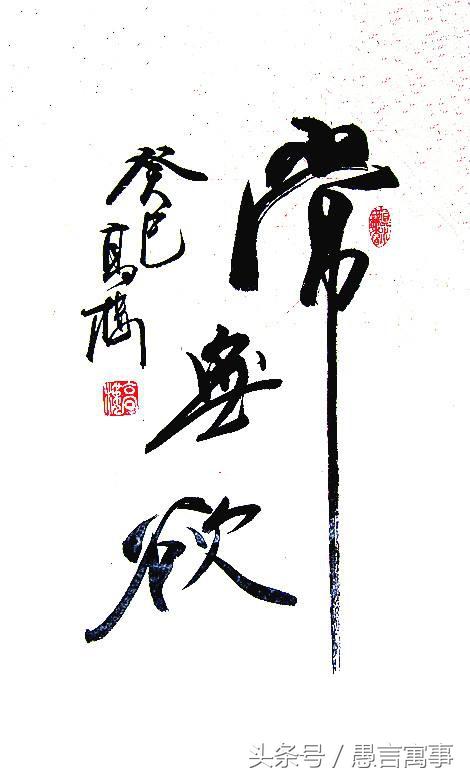 常無欲
癸巳高梅
头条号 / 愚言寓事